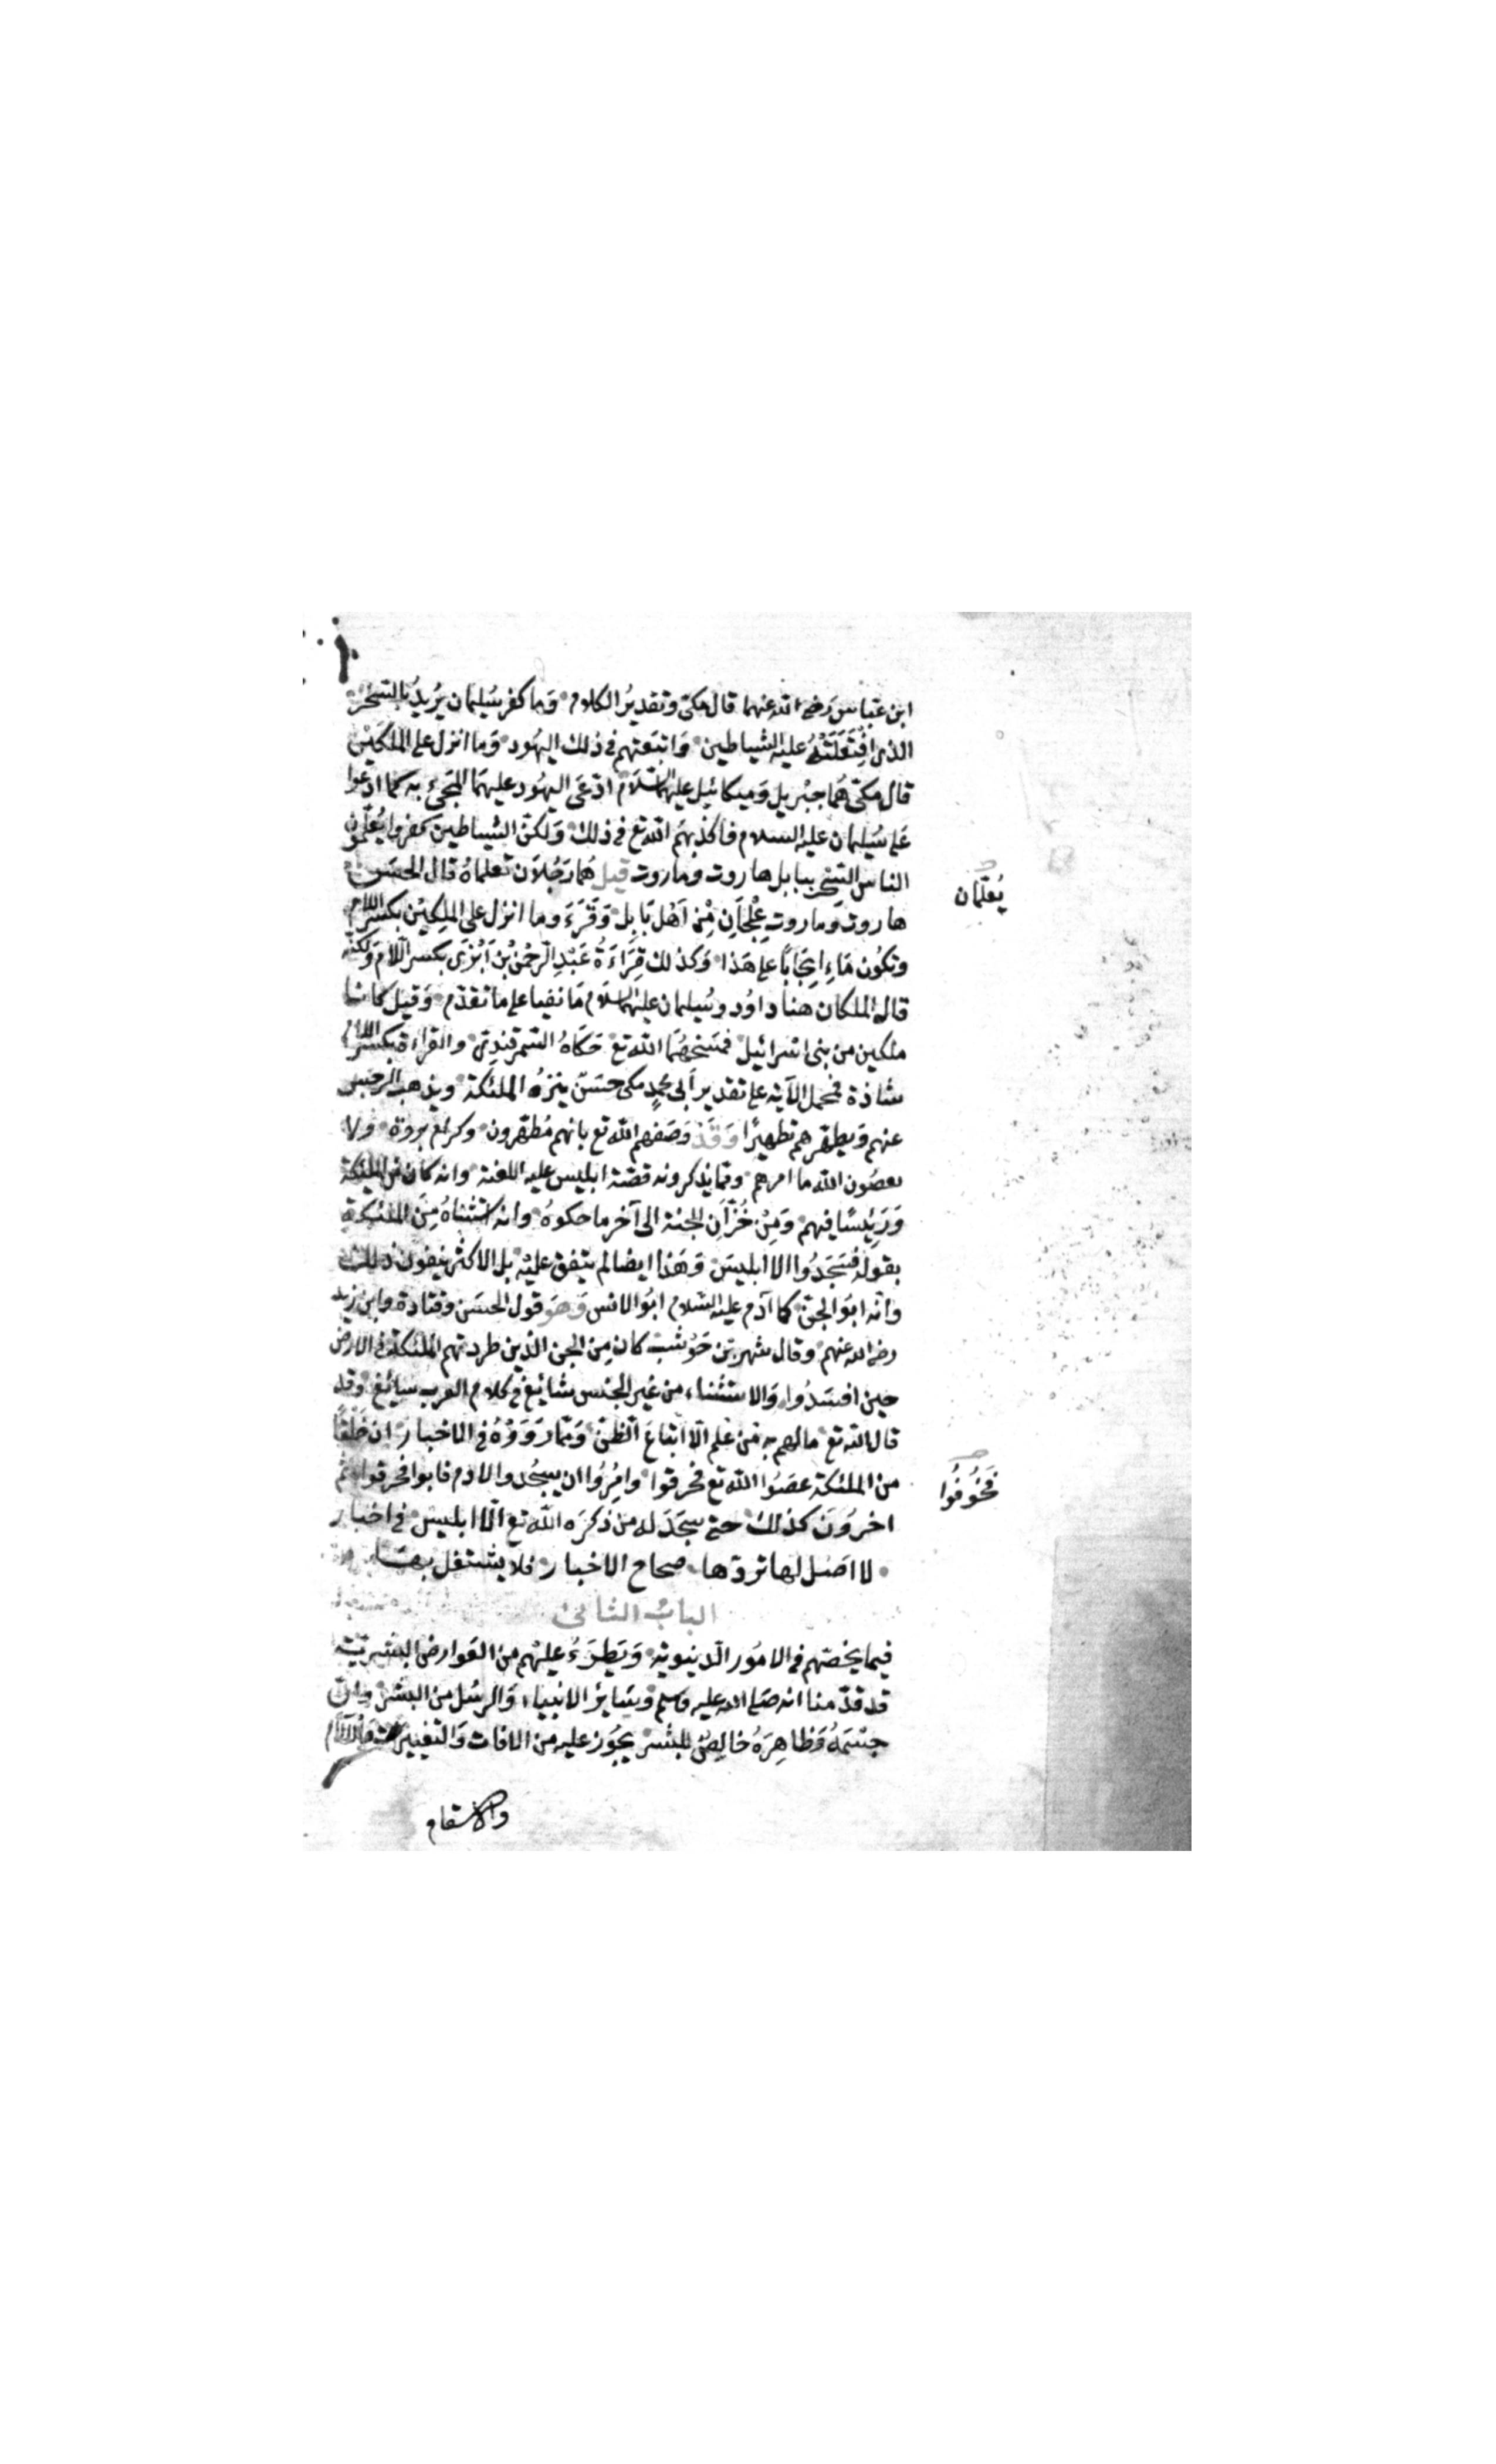 ابن عباس رضى الله عنهما قال مكى وتقدير الكلام وما كفر سليمان يريد بالسحر
الذى افتعلته عليه الشياطين واتبعتهم فى ذلك اليهود وما انزل على الملكين
قال مكى هما جبريل وميكائيل عليهما السلام ادعى اليهود عليهما المجئ به كما ادعوا
على سليمان عليه السلام فاكذبهم الله تع فى ذلك ولكن الشياطين كفروا يعلمون
الناس السحر ببابل هاروت وماروت قيل هما رجلان تعلماه قال الحسن
يعلمان
هاروت وماروت علجان من اهل بابل وقرئ وما انزل على الملكين بكسر اللام
وتكون ما ايجابا على هذا وكذلك قراءة عبد الرحمن بن ابزى بكسر اللام ولكنه
قال الملكان هنا داود وسليمان عليهما السلام ما نفيا على ما تقدم وقيل كانا
ملكين من بنى اسرائيل فمسخهما الله تع حكاه السمرقندى والقراءة بكسر اللام
شاذة فمحمل الآية على تقدير ابى محمد مكى حسن ينزه الملئكة ويذهب الرجس
عنهم ويطهرهم تطهيرا وقد وصفهم الله تع بانهم مطهرون وكرام بررة ولا
يعصون الله ما امرهم ومما يذكرونه قصة ابليس عليه اللعنة وانه كان من الملئكة
ورئيسا فيهم ومن خزان الجنة الى آخر ما حكوه وانه استثناه من الملئكة
بقوله فسجدوا الا ابليس وهذا ايضا لم يتفق عليه بل الاكثر ينفون ذلك
وانه ابو الجن كما آدم عليه السلام ابو الانس وهو قول الحسن وقتادة وابن زيد
رضى الله عنهم وقال شهر بن حوشب كان من الجن الذين طردتهم الملئكة فى الارض
حين افسدوا والاستثناء من غير الجنس شائع فى كلام العرب سائغ وقد
قال الله تع ما لهم به من علم الا اتباع الظن ومما رووه فى الاخبار ان خلقا
من الملئكة عصوا الله تع فحرقوا وامروا ان يسجدوا لادم فابوا فحرقوا ثم
فحوفوا
اخرون كذلك حتى سجد له من ذكره الله تع الا ابليس فى اخبار
لا اصل لها تردها صحاح الاخبار فلا يشتغل بها
الباب الثانى
فيما يخصهم فى الامور الدنيوية ويطرء عليهم من العوارض البشرية
قد قدمنا انه صلى الله عليه وسلم وسائر الانبياء والرسل من البشر وان
جسمه وظاهره خالص للبشر يجوز عليه من الافات والتغييرات والآلام
والاسقام